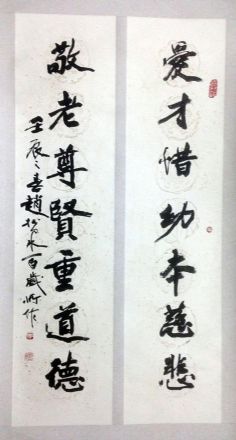 愛才惜幼本慈悲
敬老尊賢重道德
壬辰之喜趙松百歲作